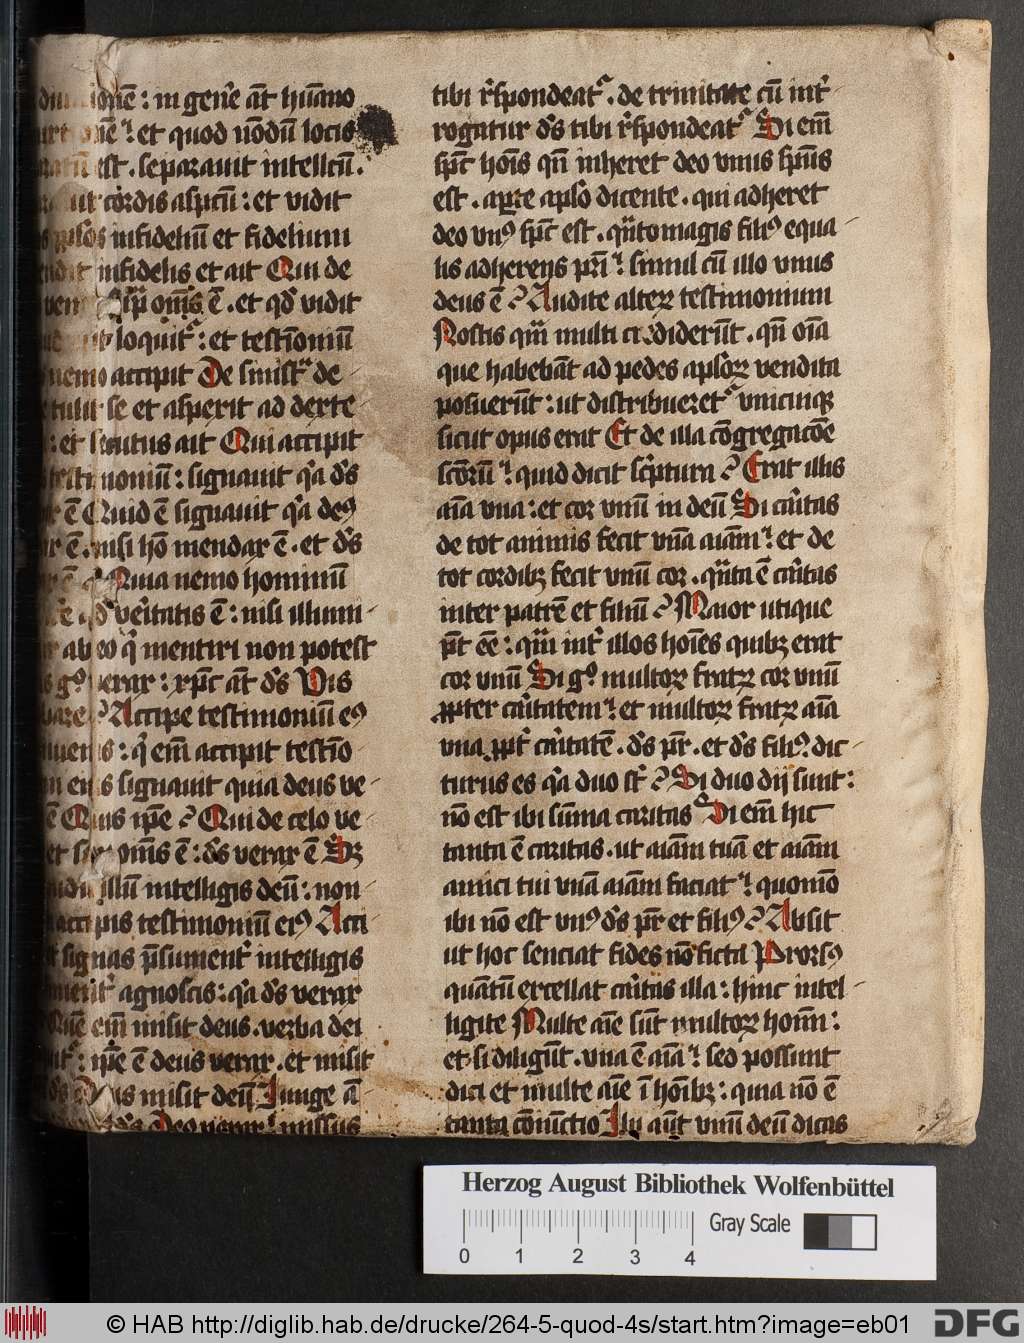 in gen̄e a̅t hūano
et quod nōdū locis
est . separauit intellc̄m .
cordis aspcū : et vidit
infideliū et fidelium
infidelis et ait Qui de
om̄s ē . et qd̄ vidit
loquit᷑ : et testīoniū
nemo accipit De sinist᷑ de
se et aspexit ad dexte
: et secutus ait Qui accipit
: signauit qa d̄s
ē Quid ē signauit qa deꝰ
nisi hō mendax ē . et d̄s
Quia nemo hominū
veritatis ē : nisi illumi
ab eo q̄ mentiri non potest
gͦ verax : xp̄c a̅t d̄s Vis
Accipe testimoniū eiꝰ
: q̄ em̄ accipit testīo
eiꝰ signauit quia deus ve
ē Quis ip̄e ? Qui de celo ve
om̄s ē : d̄s verax ē Sꝫ
illū intelligis deū : non
testimoniū eiꝰ Acci
signas p̄sument᷑ intelligis
agnoscis : qa d̄s verax
em̄ misit deus . verba dei
: ip̄e ē deus verax . et misit
misit deū Iunge a̅
Deo verax missus
tibi r̄spondeat᷑ . de trinitate cū int᷑
rogatur d̄s tibi r̄spondeat᷑ Si em̄
sp̄c hoīs qn̄ inheret deo vnus sp̄us
est . aꝑte apl̄o dicente . qui adheret
deo vnꝰ sp̄c est . qn̄to magis filiꝰ equa
lis adherens pr̄i simul cū illo vnus
deus ē ? Audite alteꝝ testimonium
Nostis qm̄ multi crediderūt . qn̄ oīa
que habebāt ad pedes apl̄oꝝ vendita
posuerūt : ut distribueret᷑ vnicuiqꝫ
sicut opus erat Et de illa cōgregacōe
scōrū quid dicit sc̄ptura ? Erat illis
aīa vna : et cor vnū in deū Si cāritas
de tot animis fecit vnā aīam et de
tot cordibꝫ fecit vnū cor . qn̄ta ē cāritas
inter patrē et filiū ? Maior utique
p̄t eē : qm̄ int᷑ illos hoīes quibꝫ erat
cor vnū Si gͦ multoꝝ fratꝝ cor vnū
ꝓpter cāritatem et multoꝝ fratꝝ aīa
vna ꝓpt᷑ cāritatē . d̄s pr̄ . et d̄s filiꝰ . dic
turus es qa duo st̄ ? Si duo dij sunt :
nō est ibi sūma caritas Si em̄ hic
tanta ē caritas . ut aīam tuā et aīam
amici tui vnā aīam faciat quomō
ibi nō est vnꝰ d̄s pr̄ et filiꝰ ? Absit
ut hoc senciat fides nō ficta Prorsꝰ
quātū excellat cāritas illa : hinc intel
ligite Multe aīe sūt multoꝝ homī :
et si diligūt . vna ē aīa sed possunt
dici et multe aīe ī hoībꝫ : quia nō ē
tanta cōiunctio Ibi aūt vnū deū dicas
Herzog August Bibliothek Wolfenbüttel
Gray Scale
0 1 2 3 4
© HAB http://diglib.hab.de/drucke/264-5-quod-4s/start.htm?image=eb01
DFG